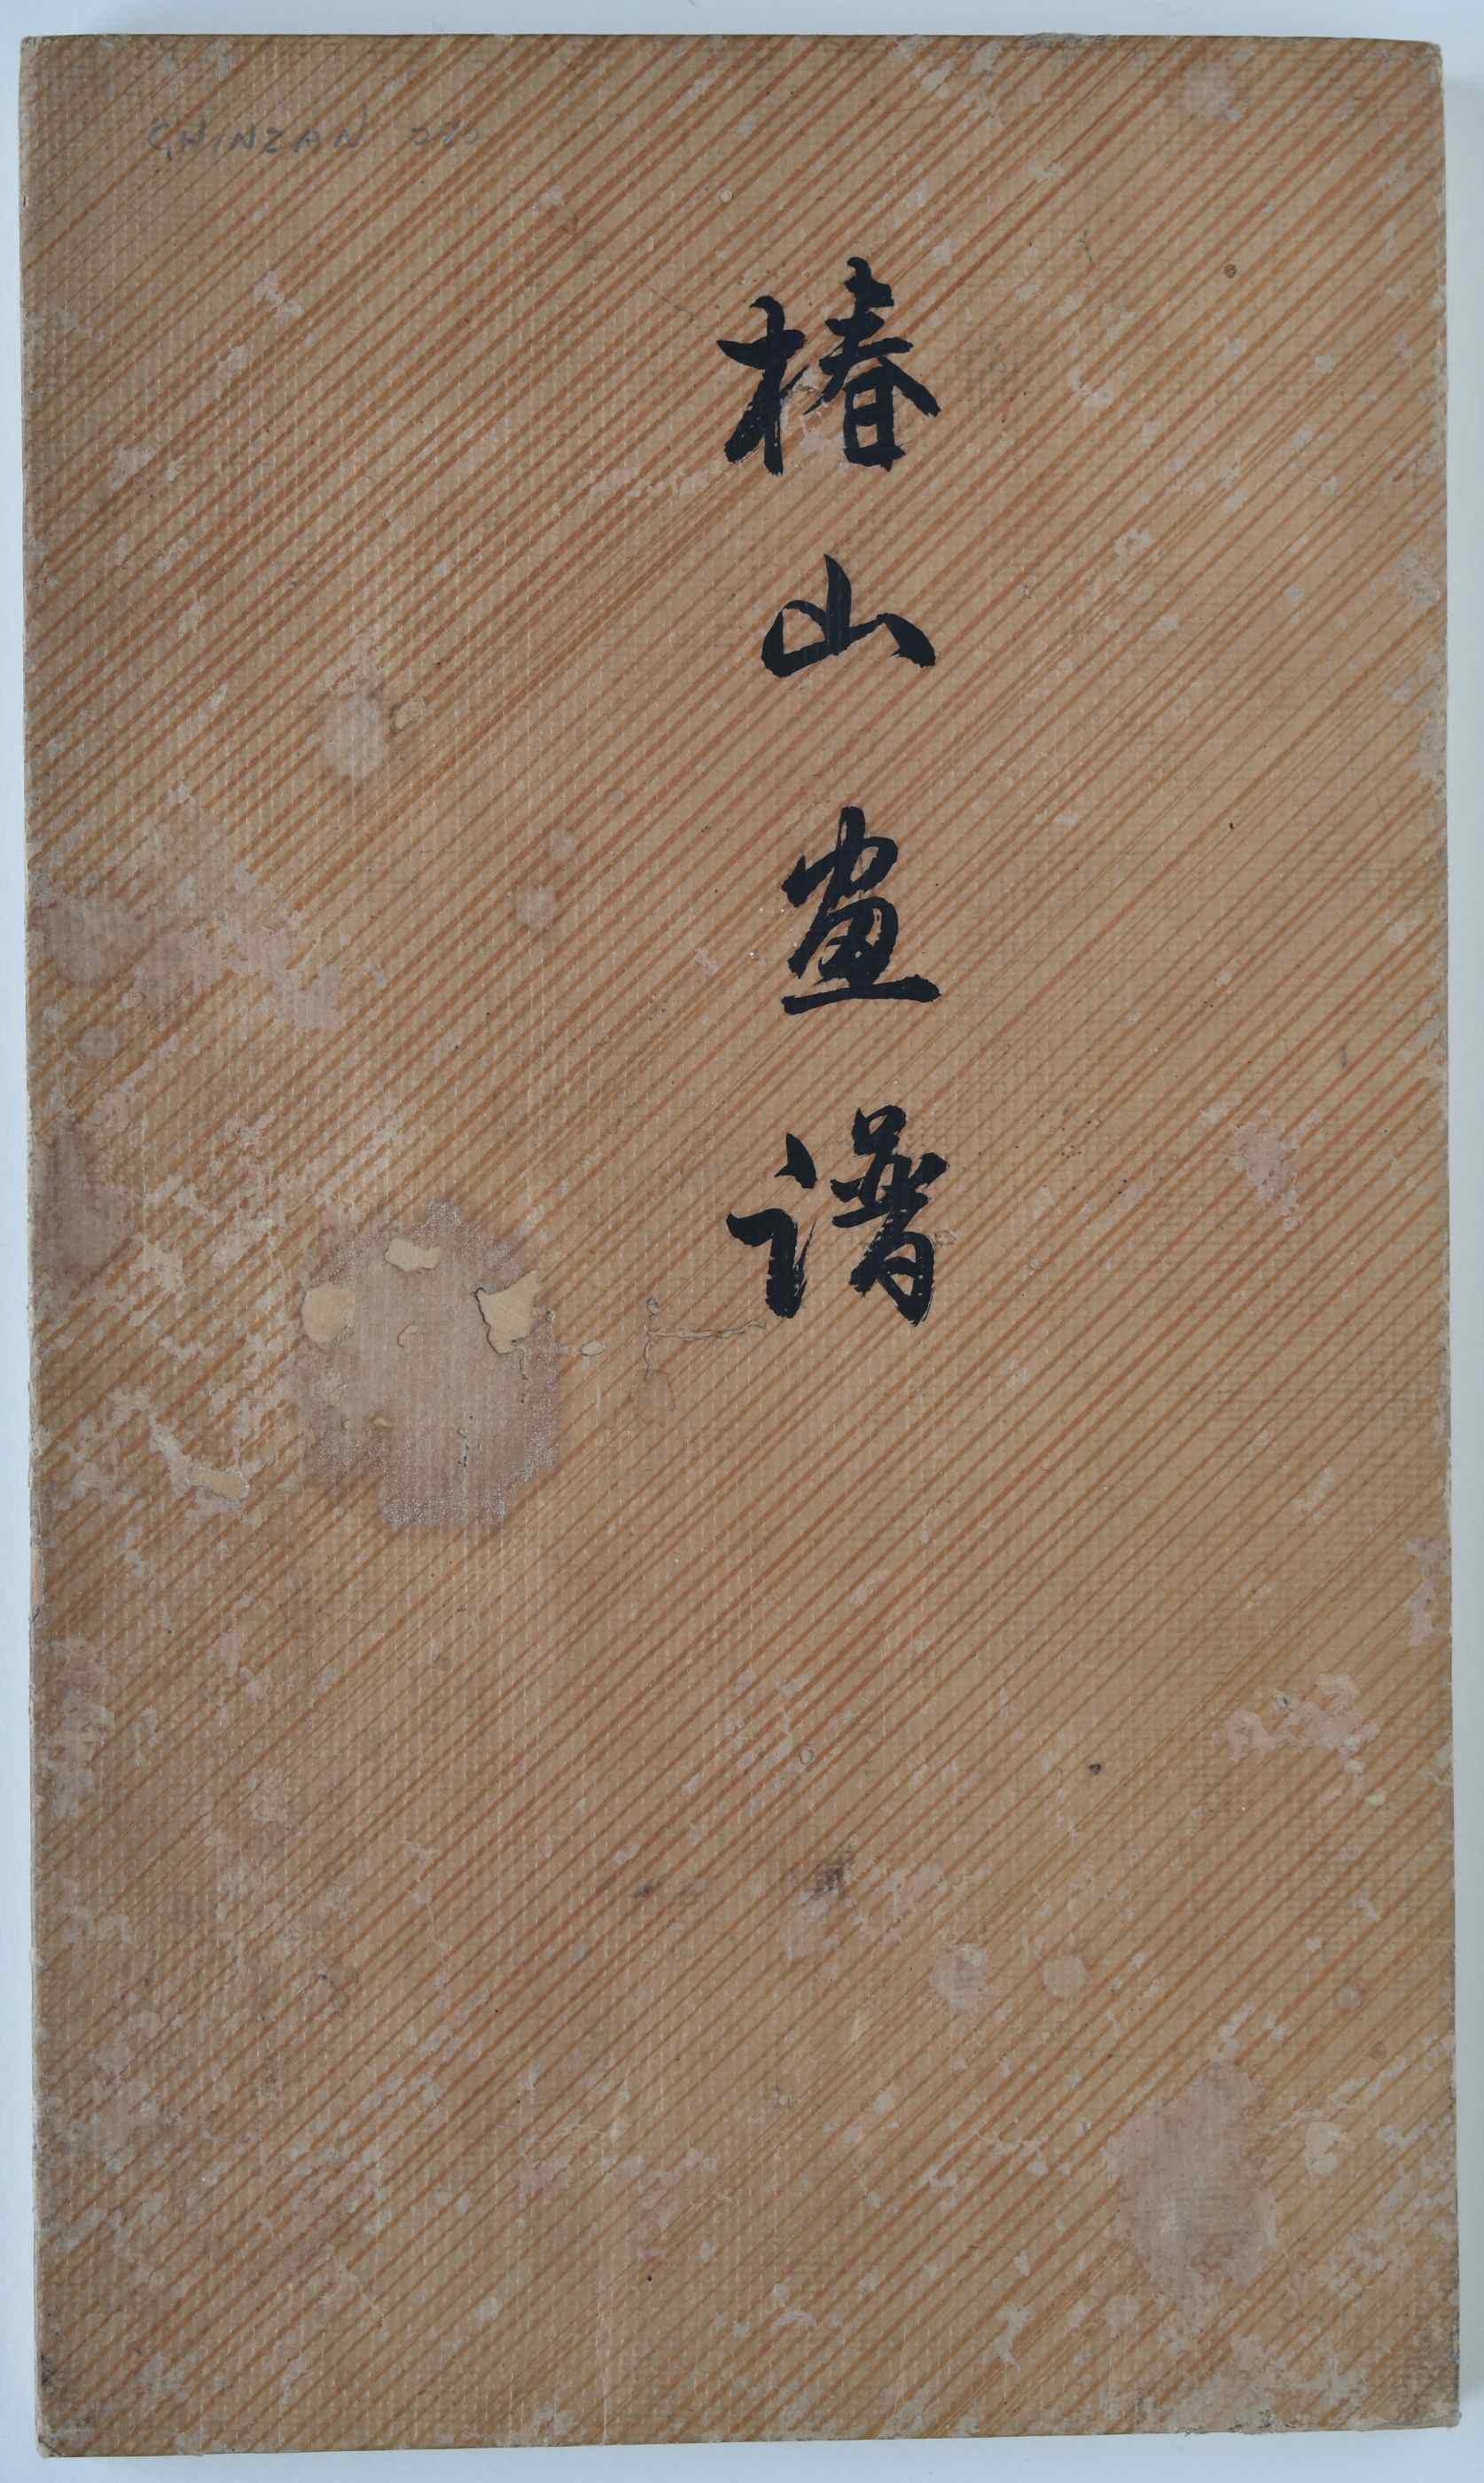 CHINZAN
椿山畫譜